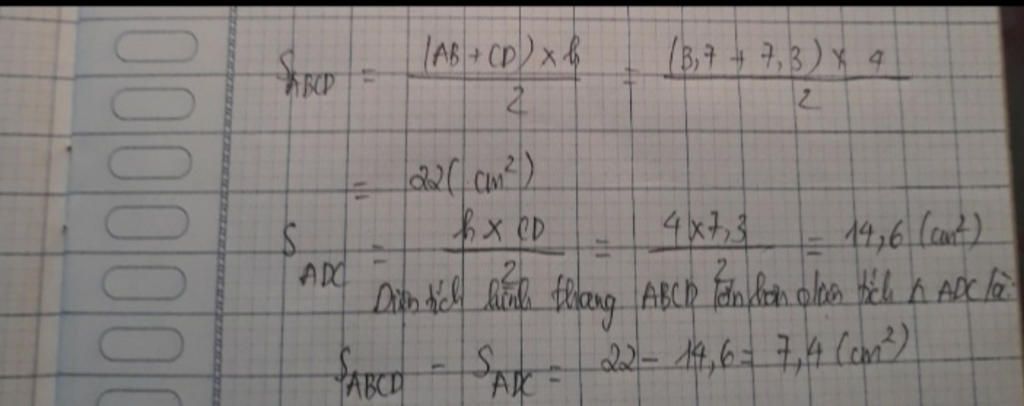 S_ABCD = (AB + CD) × h / 2 = (3,7 + 7,3) × 4 / 2
= 22 (cm²)
S_ADC = h × CD / 2 = 4 × 7,3 / 2 = 14,6 (cm²)
Diện tích hình thang ABCD lớn hơn diện tích Δ ADC là:
S_ABCD - S_ADC = 22 - 14,6 = 7,4 (cm²)